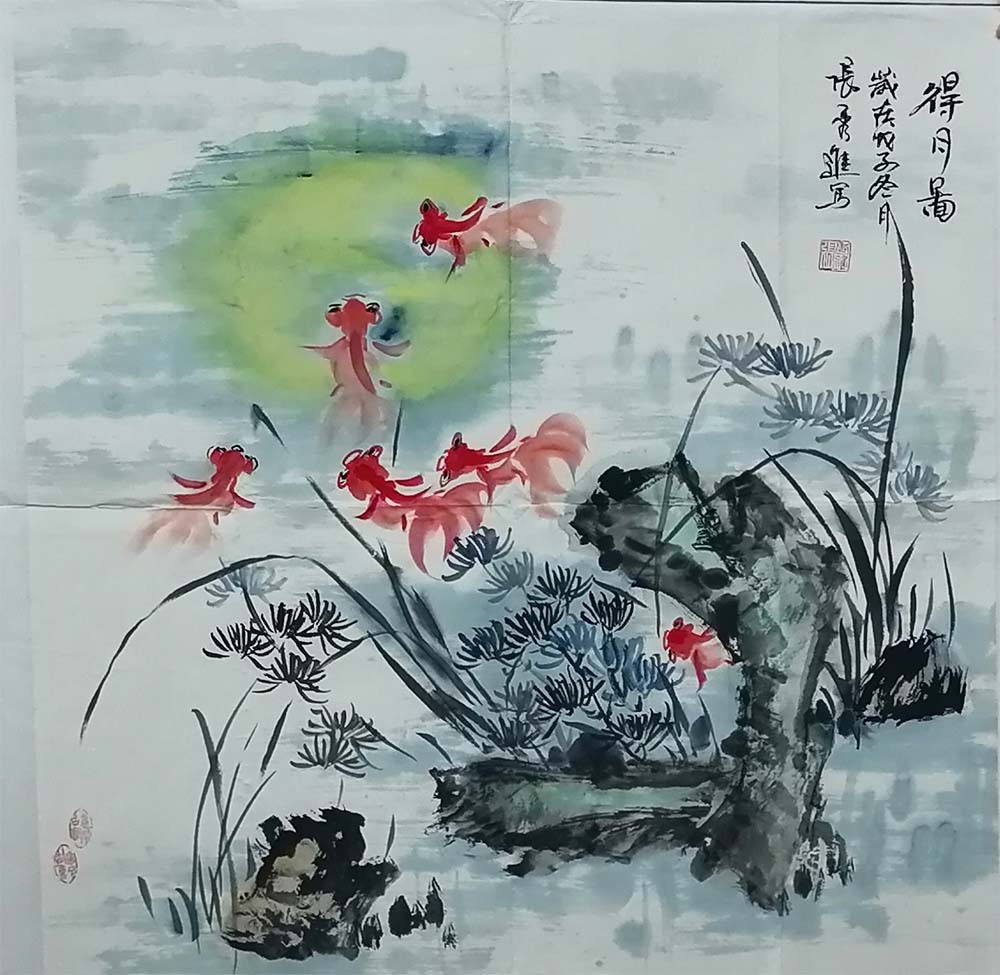 得月图
岁在戊子冬月
張秀進写